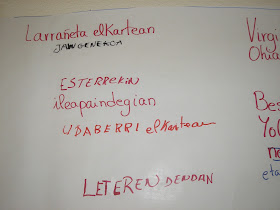 Larrañeta elkartean
ESTERREKIN
ileapaindegian
UDABERRI elkartean
LETEREN DENDAN
Virgi
Bes
Yol
eta